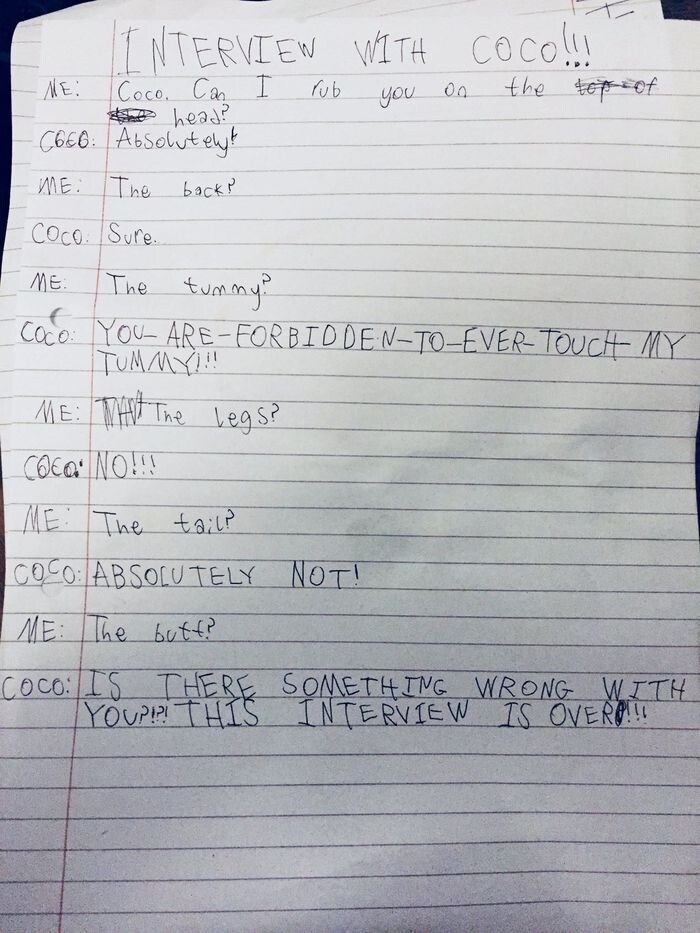 INTERVIEW WITH COCO!!!
ME: Coco. Can I rub you on the top of
the head?
COCO: Absolutely!
ME: The back?
COCO: Sure.
ME: The tummy?
COCO: YOU-ARE-FORBIDDEN-TO-EVER-TOUCH-MY
TUMMY!!!
ME: The legs?
COCO: NO!!!
ME: The tail?
COCO: ABSOLUTELY NOT!
ME: The butt?
COCO: IS THERE SOMETHING WRONG WITH
YOU?!?! THIS INTERVIEW IS OVER!!!!